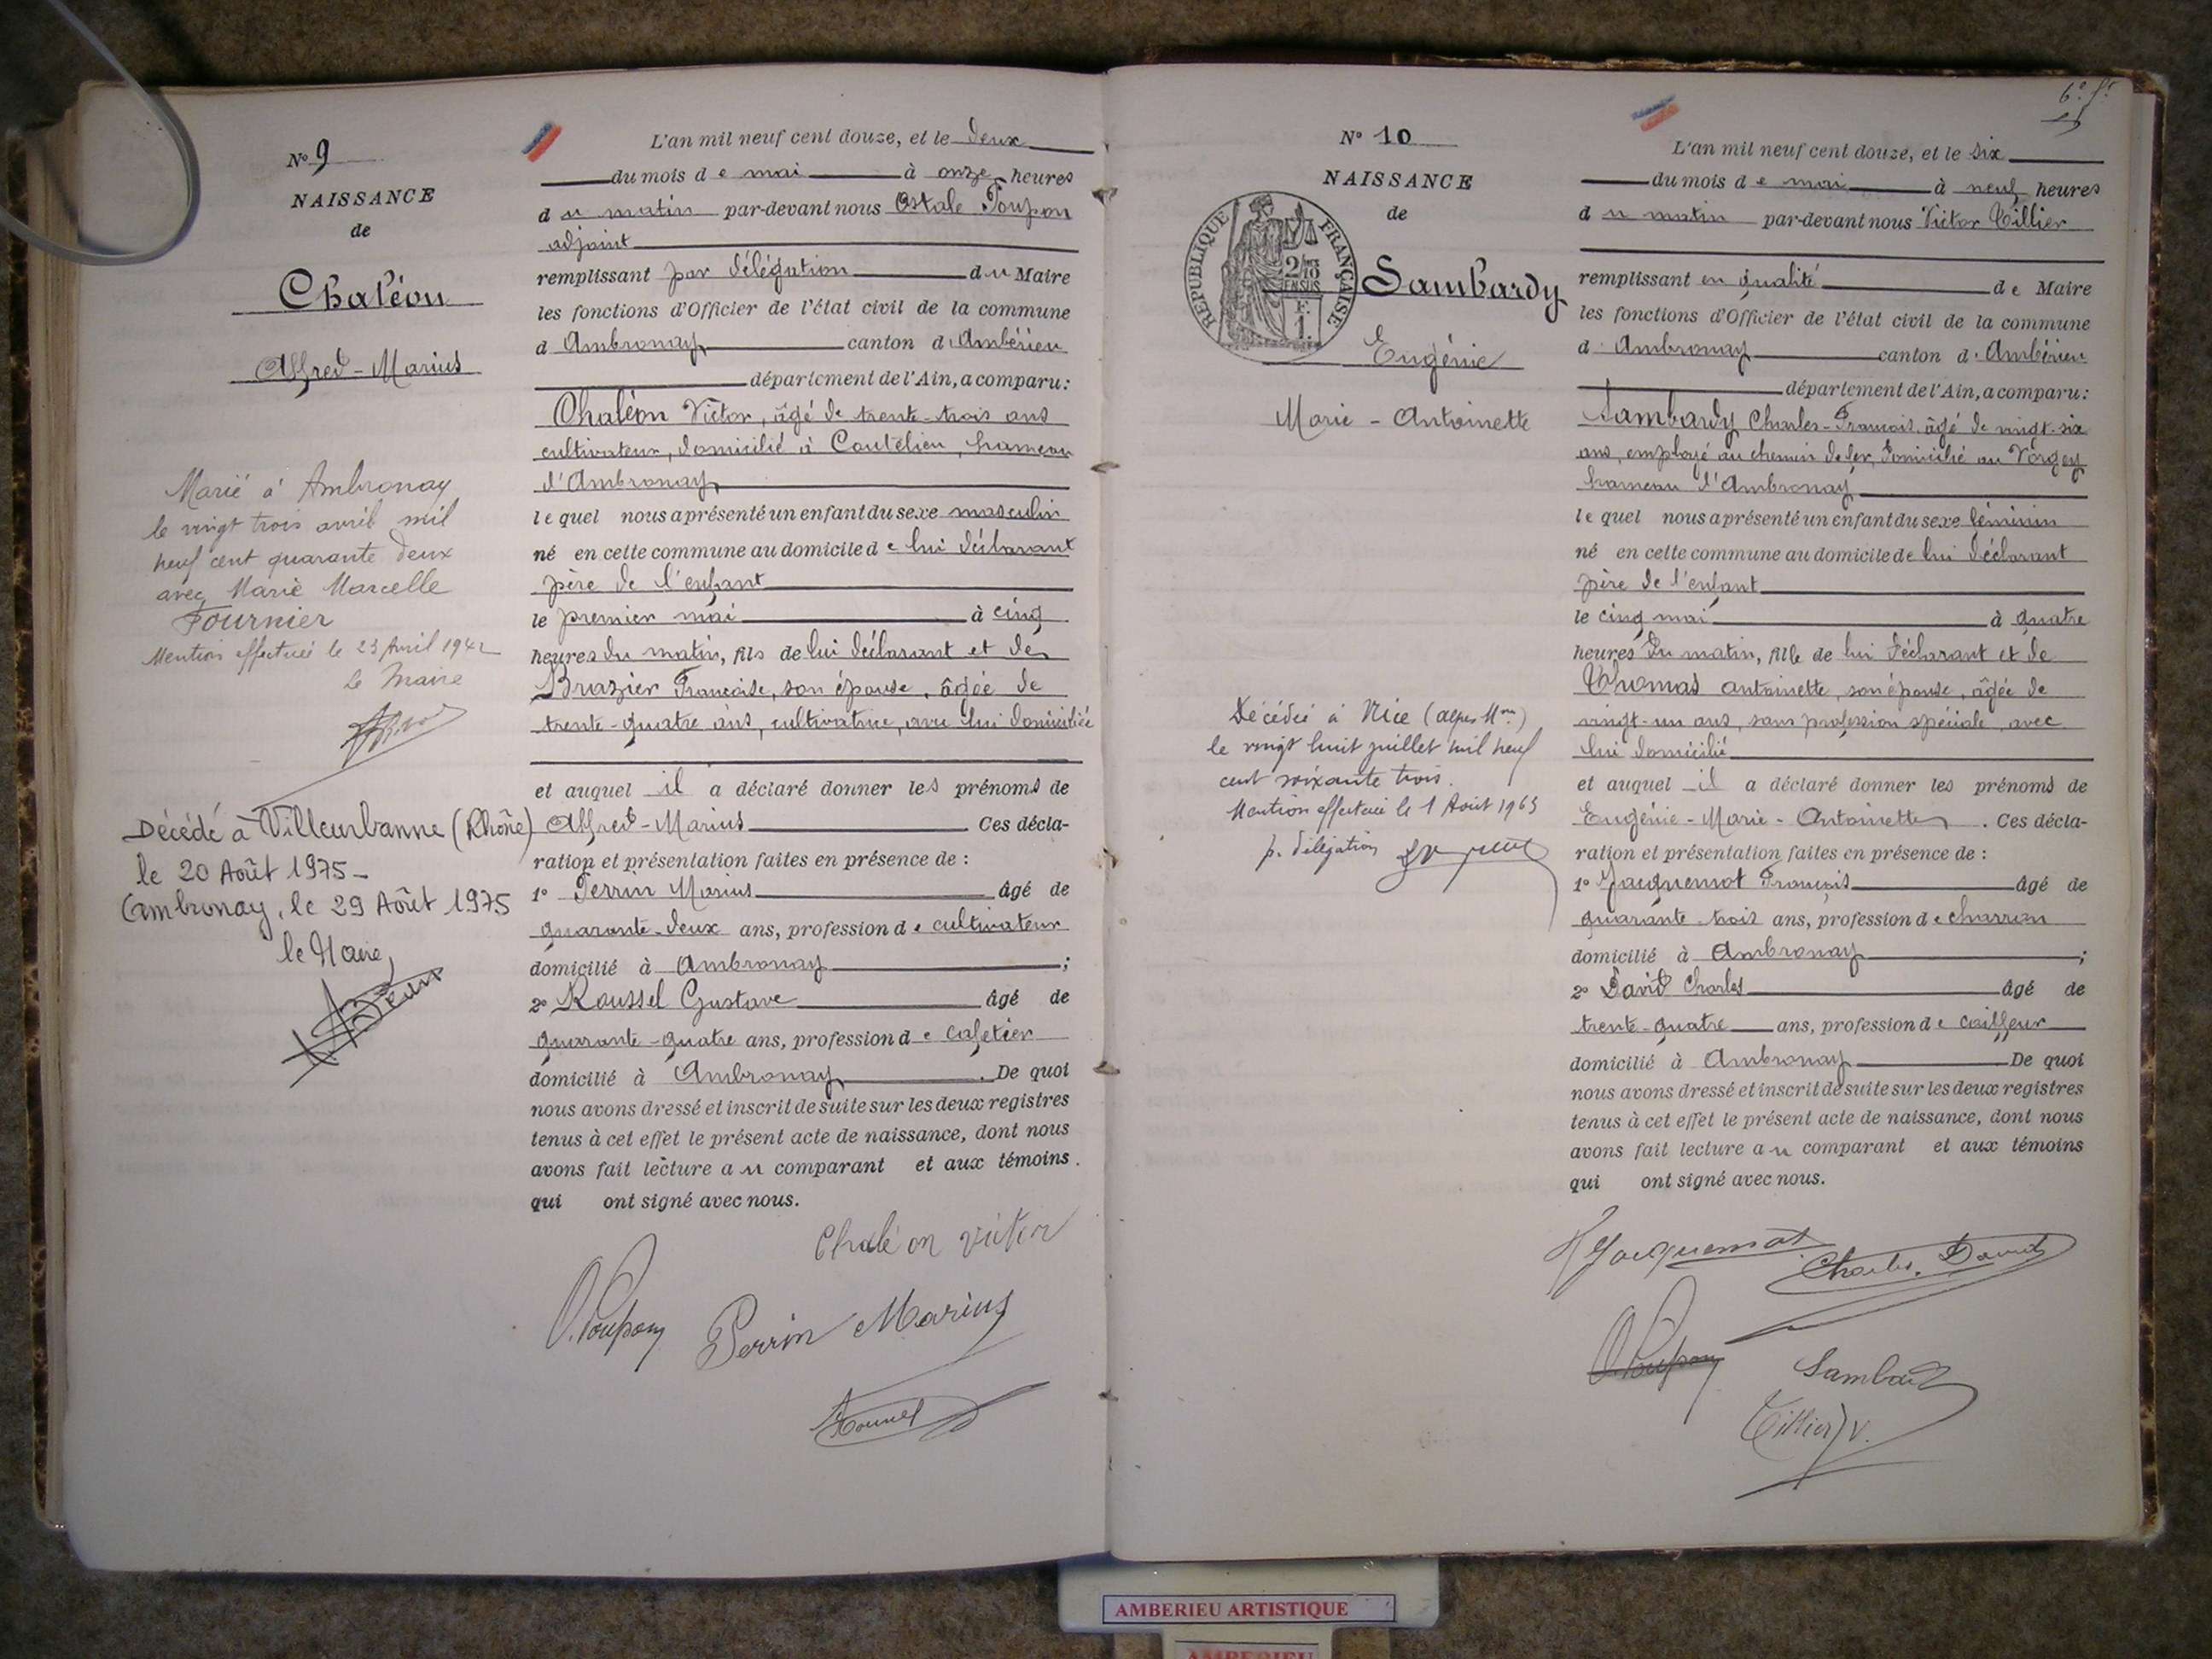 Nº 9
NAISSANCE
de
Chaléon
Alfred-Marius
Marié à Ambronay
le vingt trois avril mil
neuf cent quarante deux
avec Marie Marcelle
Fournier
Mention effectuée le 23 Avril 1942
le Maire
Décédé à Villeurbanne (Rhône)
le 20 Août 1975-
Ambronay, le 29 Août 1975
le Maire,
L'an mil neuf cent douze, et le deux
du mois de mai à onze heures
du matin par-devant nous Poupon
adjoint
remplissant par délégation du Maire
les fonctions d'Officier de l'état civil de la commune
d'Ambronay canton d'Ambérieu
département de l'Ain, a comparu:
Chaléon Victor, âgé de trente-trois ans
cultivateur, domicilié à Coutelieu, hameau
d'Ambronay
lequel nous a présenté un enfant du sexe masculin
né en cette commune au domicile de lui déclarant
père de l'enfant
le premier mai à cinq
heures du matin, fils de lui déclarant et de
Brazier Françoise, son épouse, âgée de
trente-quatre ans, cultivatrice, avec lui domiciliée
et auquel il a déclaré donner les prénoms de
Alfred-Marius Ces décla-
ration et présentation faites en présence de :
1º Perrin Marius âgé de
quarante-deux ans, profession de cultivateur
domicilié à Ambronay ;
2º Roussel Gustave âgé de
quarante-quatre ans, profession de cafetier
domicilié à Ambronay. De quoi
nous avons dressé et inscrit de suite sur les deux registres
tenus à cet effet le présent acte de naissance, dont nous
avons fait lecture au comparant et aux témoins.
qui ont signé avec nous.
Chaléon Victor
O. Poupon Perrin Marius
6º fº
Nº 10
NAISSANCE
de
RÉPUBLIQUE FRANÇAISE
2/10 EN SUS
F.
1.
Sambardy
Eugénie
Marie-Antoinette
Décédée à Nice (Alpes Mmes)
le vingt huit juillet mil neuf
cent soixante trois.
Mention effectuée le 1 Août 1963
p. délégation
L'an mil neuf cent douze, et le six
du mois de mai à neuf heures
du matin par-devant nous Victor Tillier
remplissant en qualité de Maire
les fonctions d'Officier de l'état civil de la commune
d'Ambronay canton d'Ambérieu
département de l'Ain, a comparu:
Sambardy Charles-François, âgé de vingt-six
ans, employé au chemin de fer, domicilié au Vorgey
hameau d'Ambronay
lequel nous a présenté un enfant du sexe féminin
né en cette commune au domicile de lui déclarant
père de l'enfant
le cinq mai à quatre
heures du matin, fille de lui déclarant et de
Thomas Antoinette, son épouse, âgée de
vingt-un ans, sans profession spéciale, avec
lui domicilié
et auquel il a déclaré donner les prénoms de
Eugénie-Marie-Antoinette. Ces décla-
ration et présentation faites en présence de :
1º Jacquemot François âgé de
quarante-trois ans, profession de charron
domicilié à Ambronay ;
2º David Charles âgé de
trente-quatre ans, profession de coiffeur
domicilié à Ambronay De quoi
nous avons dressé et inscrit de suite sur les deux registres
tenus à cet effet le présent acte de naissance, dont nous
avons fait lecture au comparant et aux témoins
qui ont signé avec nous.
Jacquemot Charles David
O. Poupon Sambardy
Tillier V.
AMBERIEU ARTISTIQUE
AMBERIEU